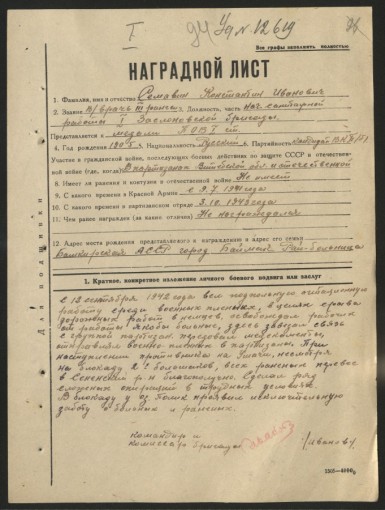 I
Уд N 12619
Все графы заполнять полностью
НАГРАДНОЙ ЛИСТ
1. Фамилия, имя и отчество Семавин Константин Иванович
2. Звание в/врач III ранга 3. Должность, часть нач. санитарной
бригады I Заслоновской бригады.
Представляется к медали ПОВ I ст.
4. Год рождения 1905 г. Национальность Русский 6. Партийность кандидат ВКП(б)
Участие в гражданской войне, последующих боевых действиях по защите СССР и отечествен-
ной войне (где, когда) В партизанах Витебской обл. отечественной
8. Имеет ли ранения и контузии в отечественной войне Не имеет
9. С какого времени в Красной Армии с 9.7. 1941 года
10. С какого времени в партизанском отряде 3.10. 1942 года
11. Чем ранее награжден (за какие отличия) Не награждался
12. Адрес места рождения представляемого к награждению и адрес его семьи
Башкирская АССР город Баймак Рай-больница
Для подшивки
1. Краткое, конкретное изложение личного боевого подвига или заслуг
С 12 сентября 1942 вел подпольную агитационную
работу среди военно пленных, в целях срыва
дорожных работ у немцев, освобождал рабочих
от работы якобы больные, здесь заводил связь
с группой партизан передовал медикаменты,
отправлял военно пленных в партизаны. При
наступлении противника на несмотря
на блокаду всех раненных
в Сенненский р-н благополучно. Сделал ряд
сложных операций в трудных условиях.
В блокаду у оз. Палик проявил исключительную
заботу о больных и раненых.
Командир и
Комиссар бригады /Иванов/